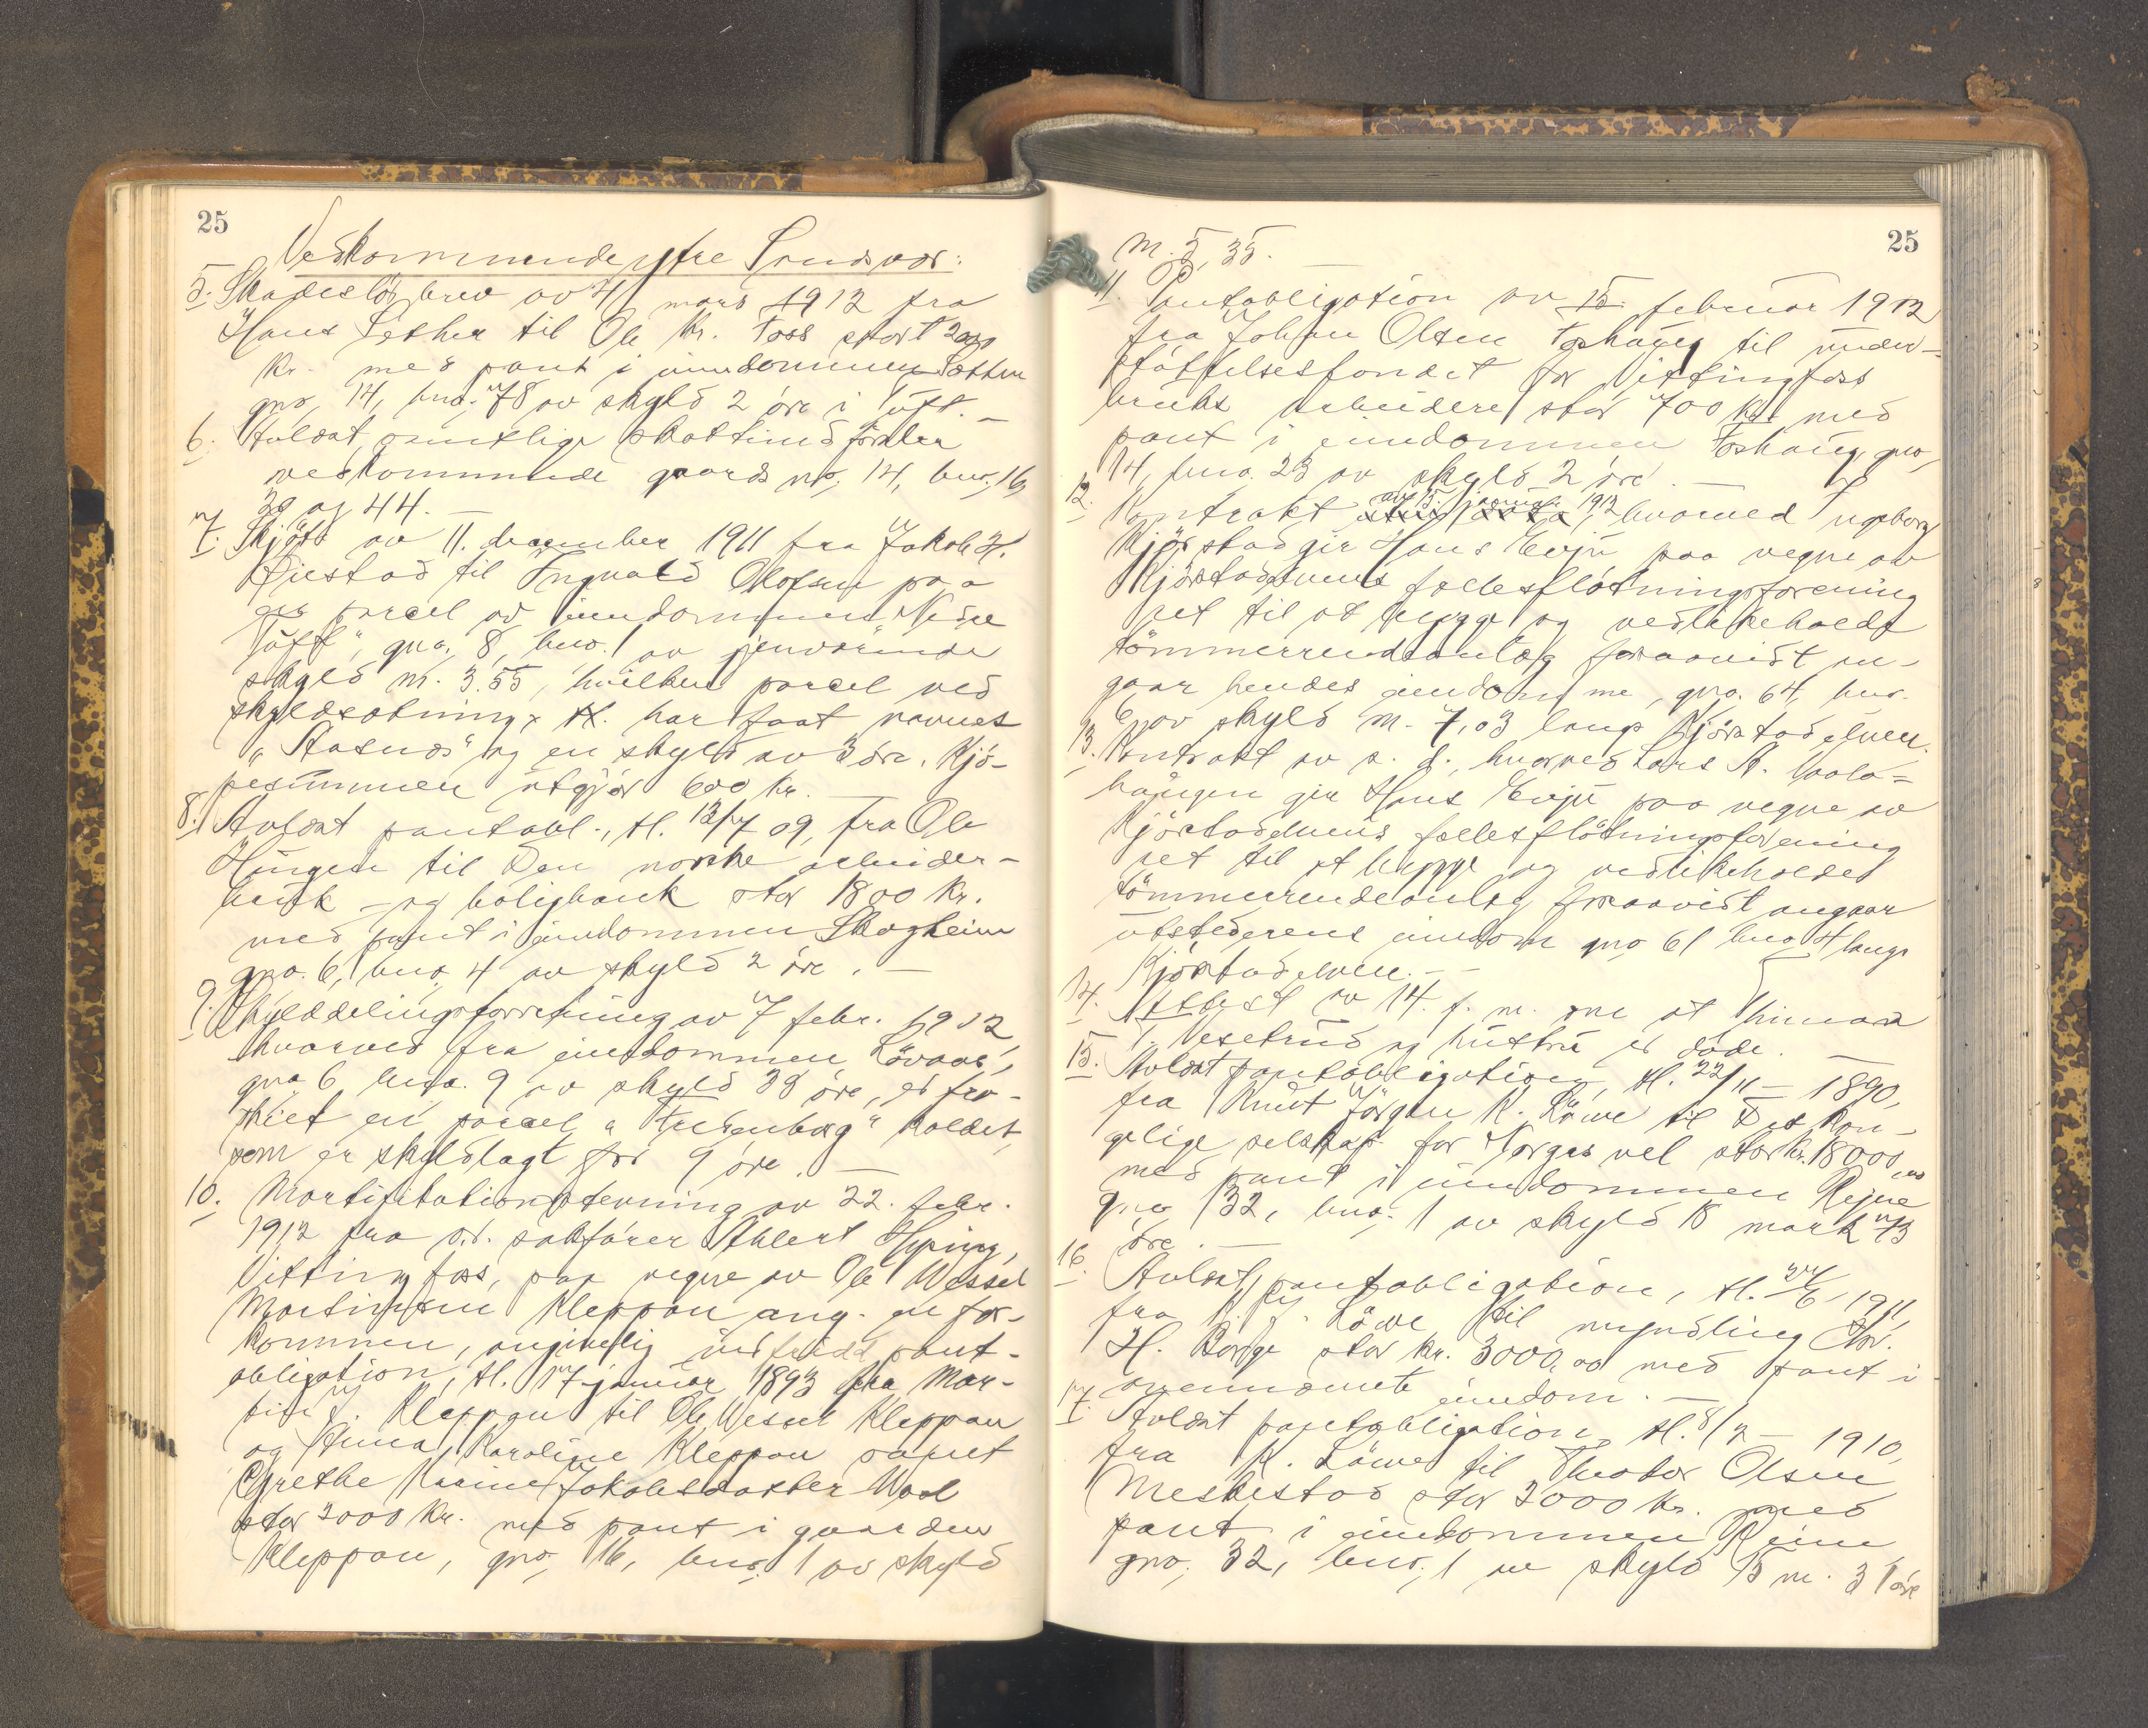 25
Vedkommende ytre Sandsvær:
5. Skadesløsbrev av 4 mars 1912 fra
Hans Sether til Ole Kr. Foss stort 2000
kr. med pant i eiendommen Sætten
gno. 14, bno. 78 av skyld 2 øre i Tuft. —
6. Avlæst samtlige
vedkommende gaards no. 14, bno. 16,
30 og 44. —
7. Skjøte av 11. december 1911 fra Jakob H.
til Ingvald Olofsen paa
parcel av eiendommen Nedre
Tuft", gno. 8, bno. 1 av gjenværende
skyld m. 3.55, hvilken parcel ved
skyldsætning, tl. har faat navnet
og en skyld av 3 øre. Kjö-
pesummen utgjør 600 kr. —
8. Avlæst pantobl., tl. 13/7 09, fra Ole
til Den norske arbeider-
bruk - og boligbank stor 1800 kr.
med pant i eiendommen Skogheim
gno. 6, bno. 4 av skyld 2 øre. —
9. Skylddelingsforretning av 7 febr. 1912,
hvorved fra eiendommen Løvaas,
gno 6 bno. 9 av skyld 38 øre, er fra-
skilt en parcel " kaldet,
som er skyldlagt for 9 øre. —
10. Mortifikationsstevning av 22. febr.
1912 fra o.r. sakfører Ahlert Hysing,
Vittingfoss, paa vegne av Ole Wessel
Mortinsen Kleppan ang. en for-
kommen, angivelig indfridd pant-
obligation, tl. 17 januar 1893 fra Mar-
tin J. Kleppan til Ole Wessel Kleppan
og Anna Karoline Kleppan samt
Grethe Karine Jakobsdatter Moel
stor 2000 kr. med pant i gaarden
Kleppan, gno. 16, bno. 1 av skyld
25
m. 5,35.
11. Pantobligation av 15. februar 1912
fra Johan Olsen Foshaug til under-
støttelsesfondet for Vittingfoss
bruks arbeidere stor 700 kr. med
pant i eiendommen Foshaug, gno.
14, bno. 23 av skyld 2 øre. —
12. Kontrakt av 15. januar 1912, hvorved Ingeborg
Kjörstad gir Hans Evju paa vegne av
Kjörstadelvens fællesflötningsforening
ret til at bygge og vedlikeholde
tömmerrendeanlæg forsaavidt an-
gaar hendes eiendomme, gno. 64, bno.
6, av skyld m. 7,03 langs Kjörstadelven.
13. Kontrakt av s. d., hvorved Lars A.
gir Hans Evju paa vegne av
Kjörstadelvens fællesflötningsforening
ret til at bygge og vedlikeholde
tömmerrendeanlæg forsaavidt angaar
utstederens eiendom gno 61 bno 4 langs
Kjörstadelven. —
14. Attest av 14. f. m. om at
T. Vesetrud og hustru er døde. —
15. Avlæst pantobligation, tl. 22/11 — 1890,
fra Knut Jörgen K. Löwe til Det kon-
gelige selskap for Norges vel stor kr. 18000,00
med pant i eiendommen Rejne
gno 32, bno. 1 av skyld 18 mark 73
øre. —
16. Avlæst pantobligation, tl. 24/6 1911,
fra K. J. Löwe til myndling Chr.
H. Borge stor kr. 3000,00 med pant i
ovennævnte eiendom. —
17. Avlæst pantobligation, tl. 8/2 — 1910,
fra K. Löwe til Theodor Olsen
Meshestad stor 2000 kr. med
pant i eiendommen Reine
gno. 32, bno. 1 av skyld 15 m. 31 øre